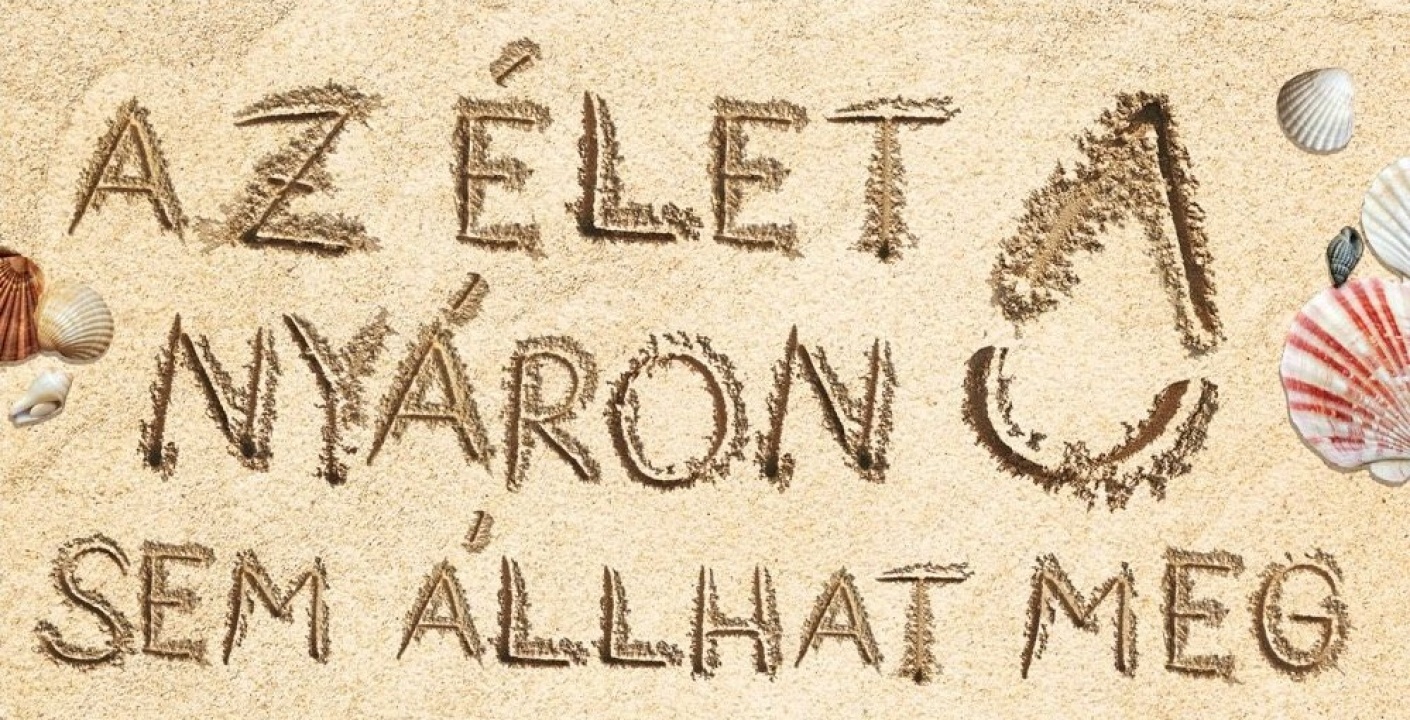 AZ ÉLET
NYÁRON
SEM ÁLLHAT MEG